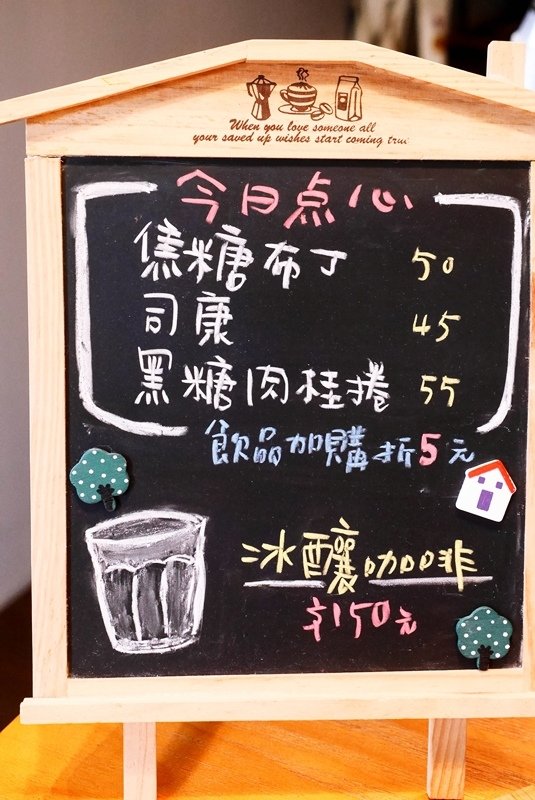 When you love someone all
your saved up wishes start coming true
今日点心
焦糖布丁 50
司康 45
黑糖肉桂捲 55
飲品加購折5元
冰釀咖啡
$150元